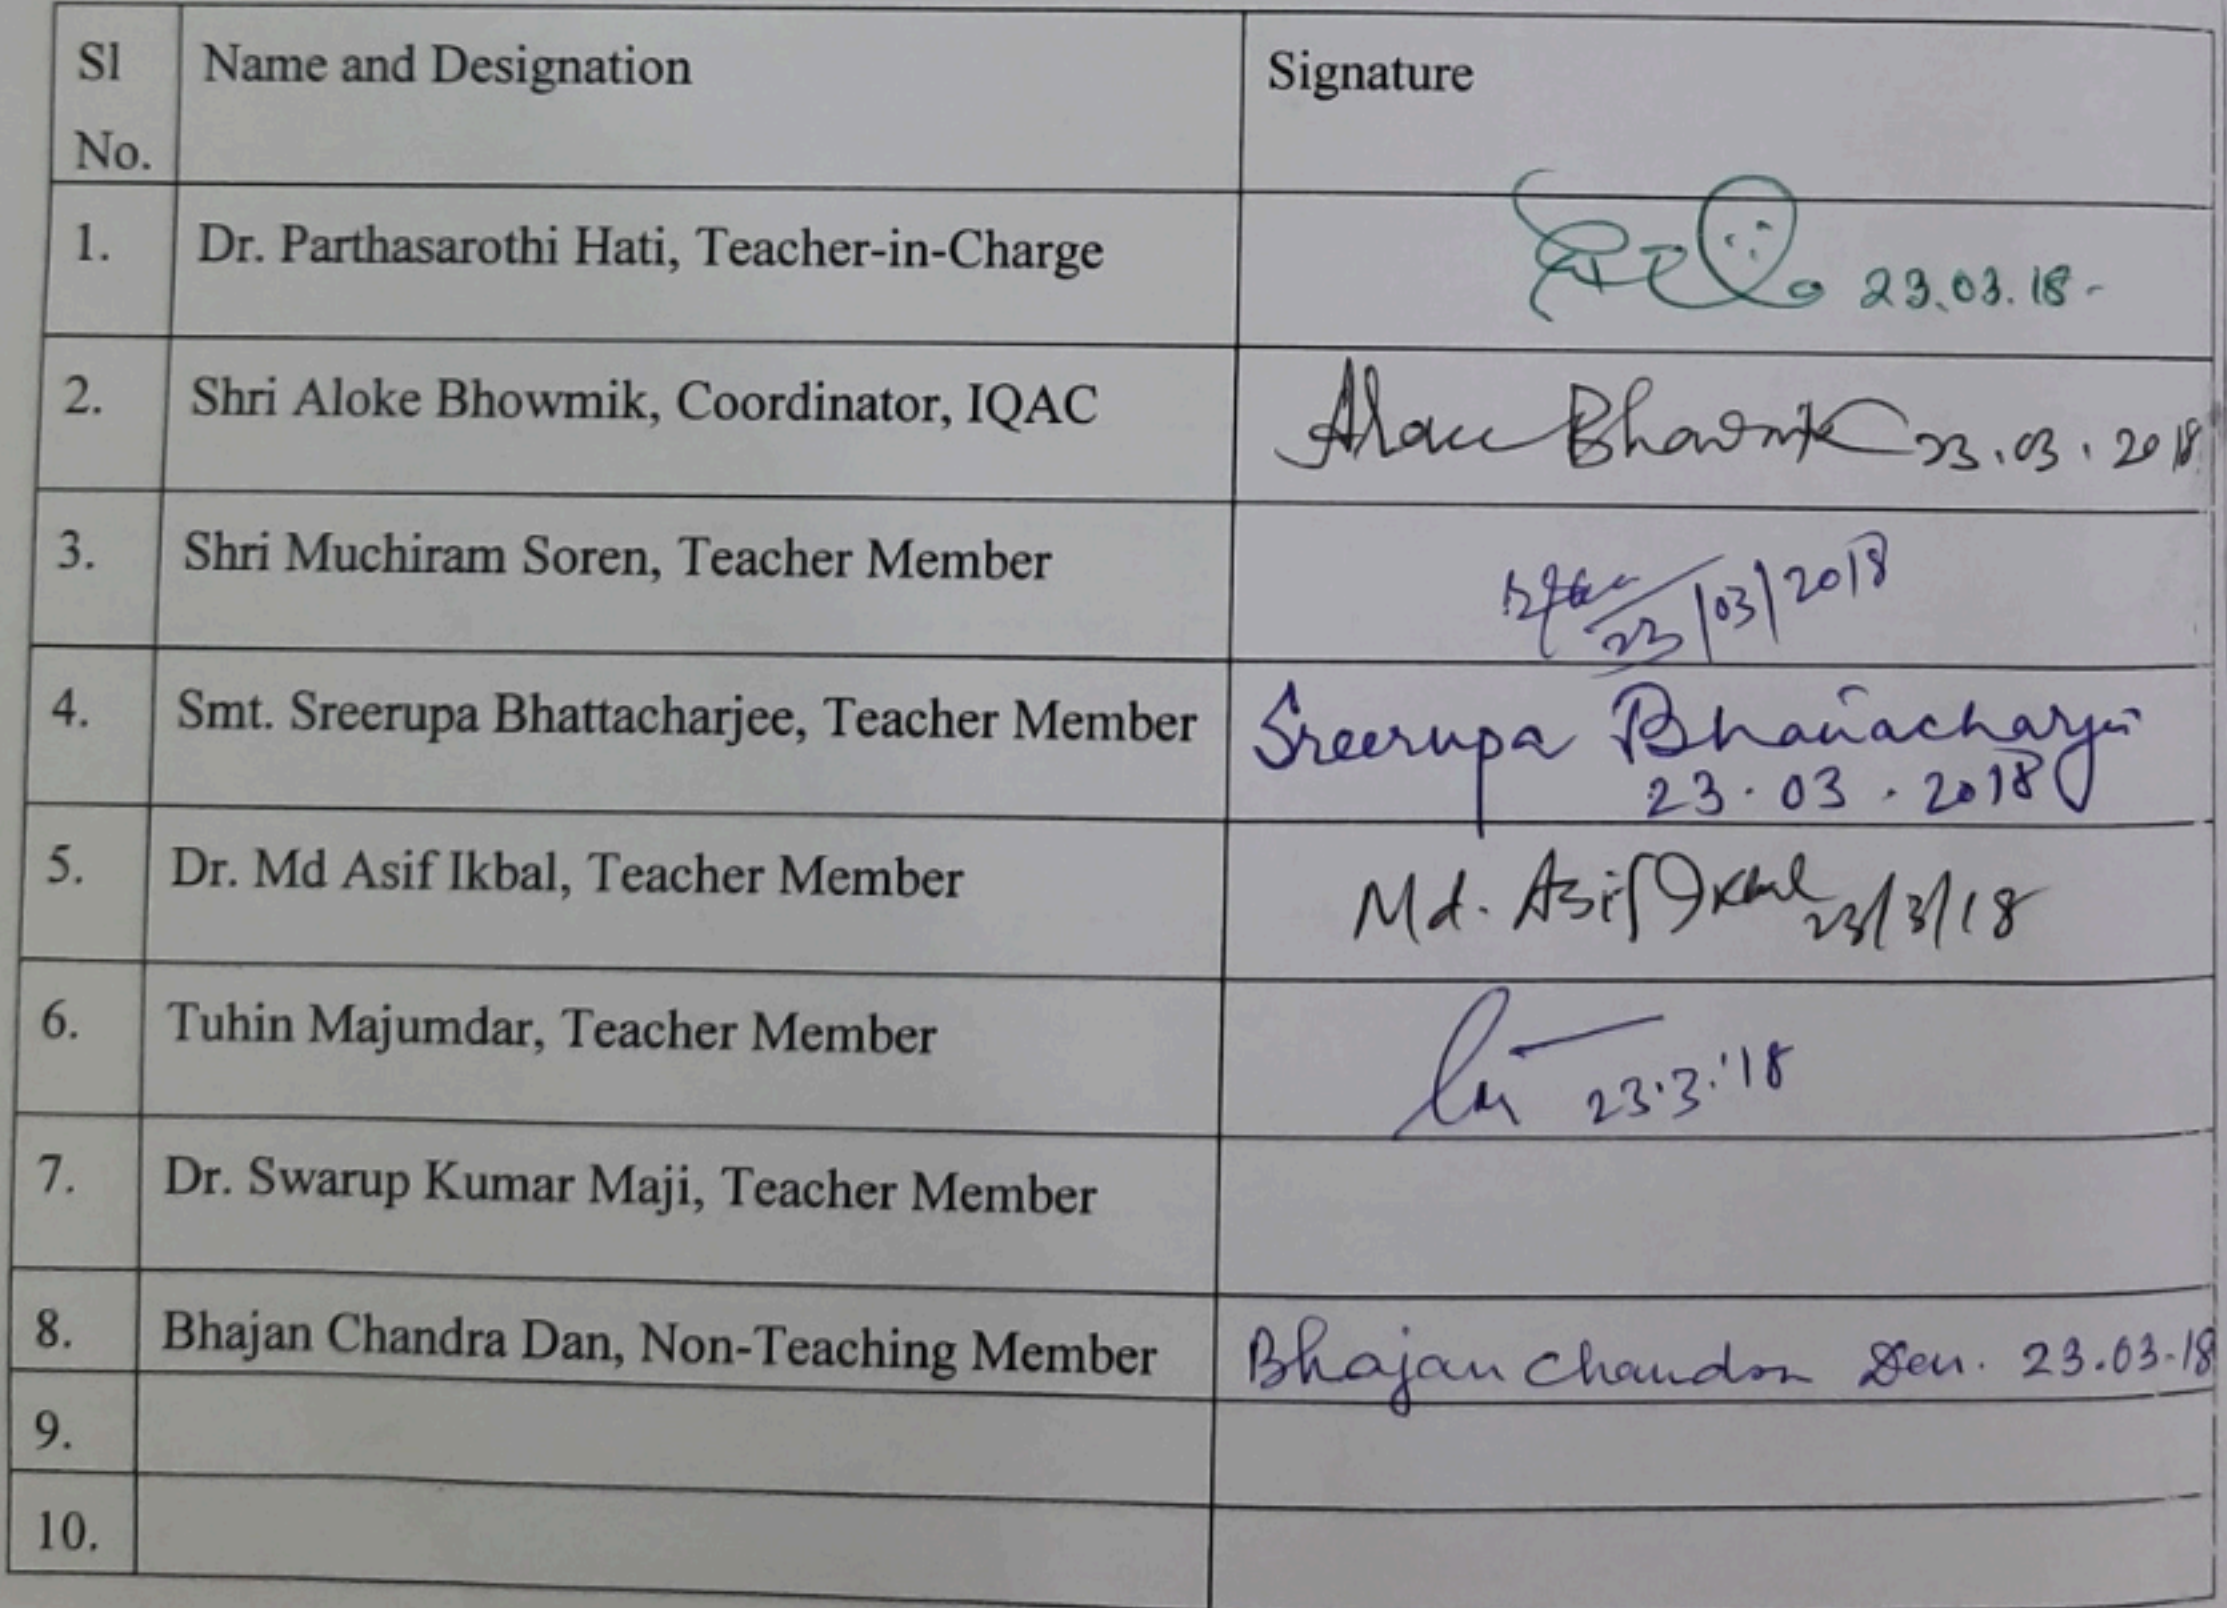 Sl No. Name and Designation Signature
1. Dr. Parthasarothi Hati, Teacher-in-Charge 23.03.18-
2. Shri Aloke Bhowmik, Coordinator, IQAC Aloke Bhowmik 23.03.2018
3. Shri Muchiram Soren, Teacher Member 23/03/2018
4. Smt. Sreerupa Bhattacharjee, Teacher Member Sreerupa Bhattacharjee
23.03.2018
5. Dr. Md Asif Ikbal, Teacher Member Md. Asif Ikbal 23/3/18
6. Tuhin Majumdar, Teacher Member 23.3.'18
7. Dr. Swarup Kumar Maji, Teacher Member
8. Bhajan Chandra Dan, Non-Teaching Member Bhajan Chandra Dan. 23.03.18
9.
10.